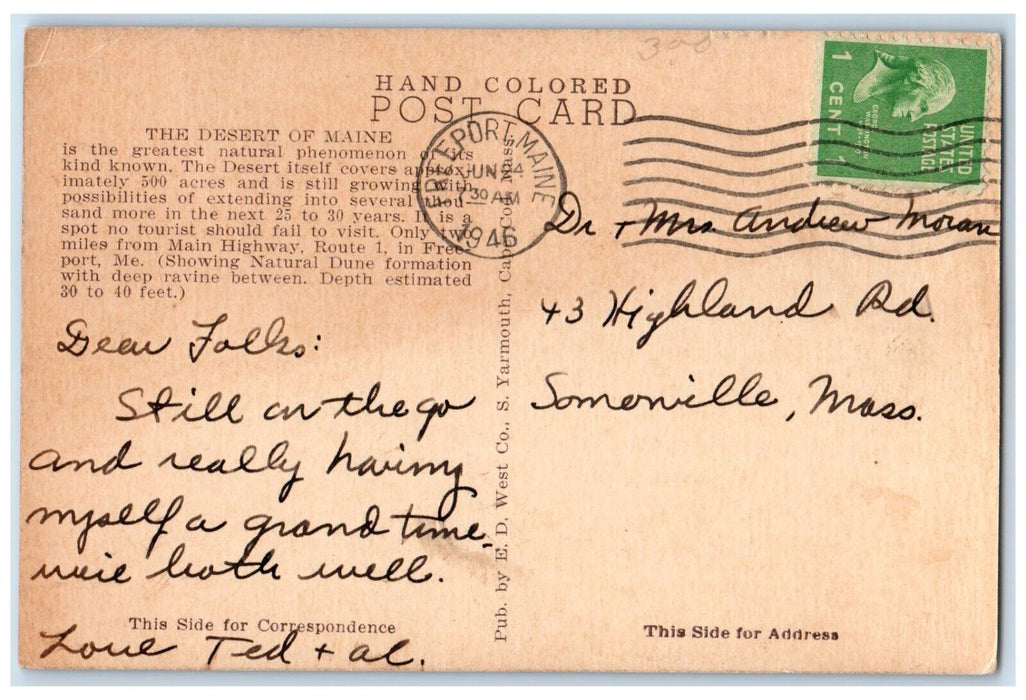 HAND COLORED
POST CARD
THE DESERT OF MAINE
is the greatest natural phenomenon of its
kind known. The Desert itself covers approx-
imately 500 acres and is still growing with
possibilities of extending into several thou-
sand more in the next 25 to 30 years. It is a
spot no tourist should fail to visit. Only two
miles from Main Highway, Route 1, in Free-
port, Me. (Showing Natural Dune formation
with deep ravine between. Depth estimated
30 to 40 feet.)
Dear Folks:
Still on the go
and really having
myself a grand time.
we're both well.
This Side for Correspondence
Love Ted + al.
Pub. by E. D. West Co., S. Yarmouth, Cape Cod, Mass.
FREEPORT, MAINE
JUN 24
7 30 AM
1946
1 CENT 1
GEORGE WASHINGTON
UNITED
STATES
POSTAGE
Dr + Mrs. Andrew Moran
43 Highland Rd.
Somerville, Mass.
This Side for Address